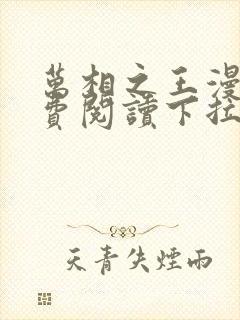 萬相之王漫
費閱讀下拉
天青失煙雨